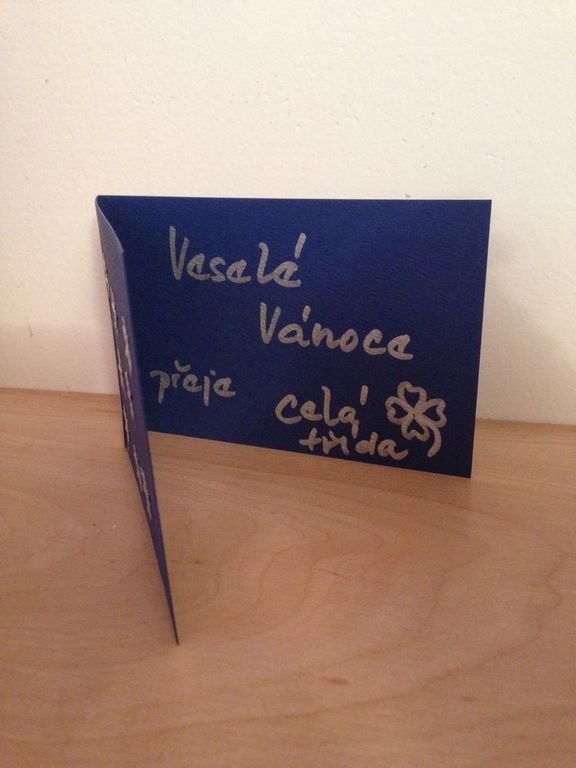 Veselé
Vánoce
přeje
celá
třída